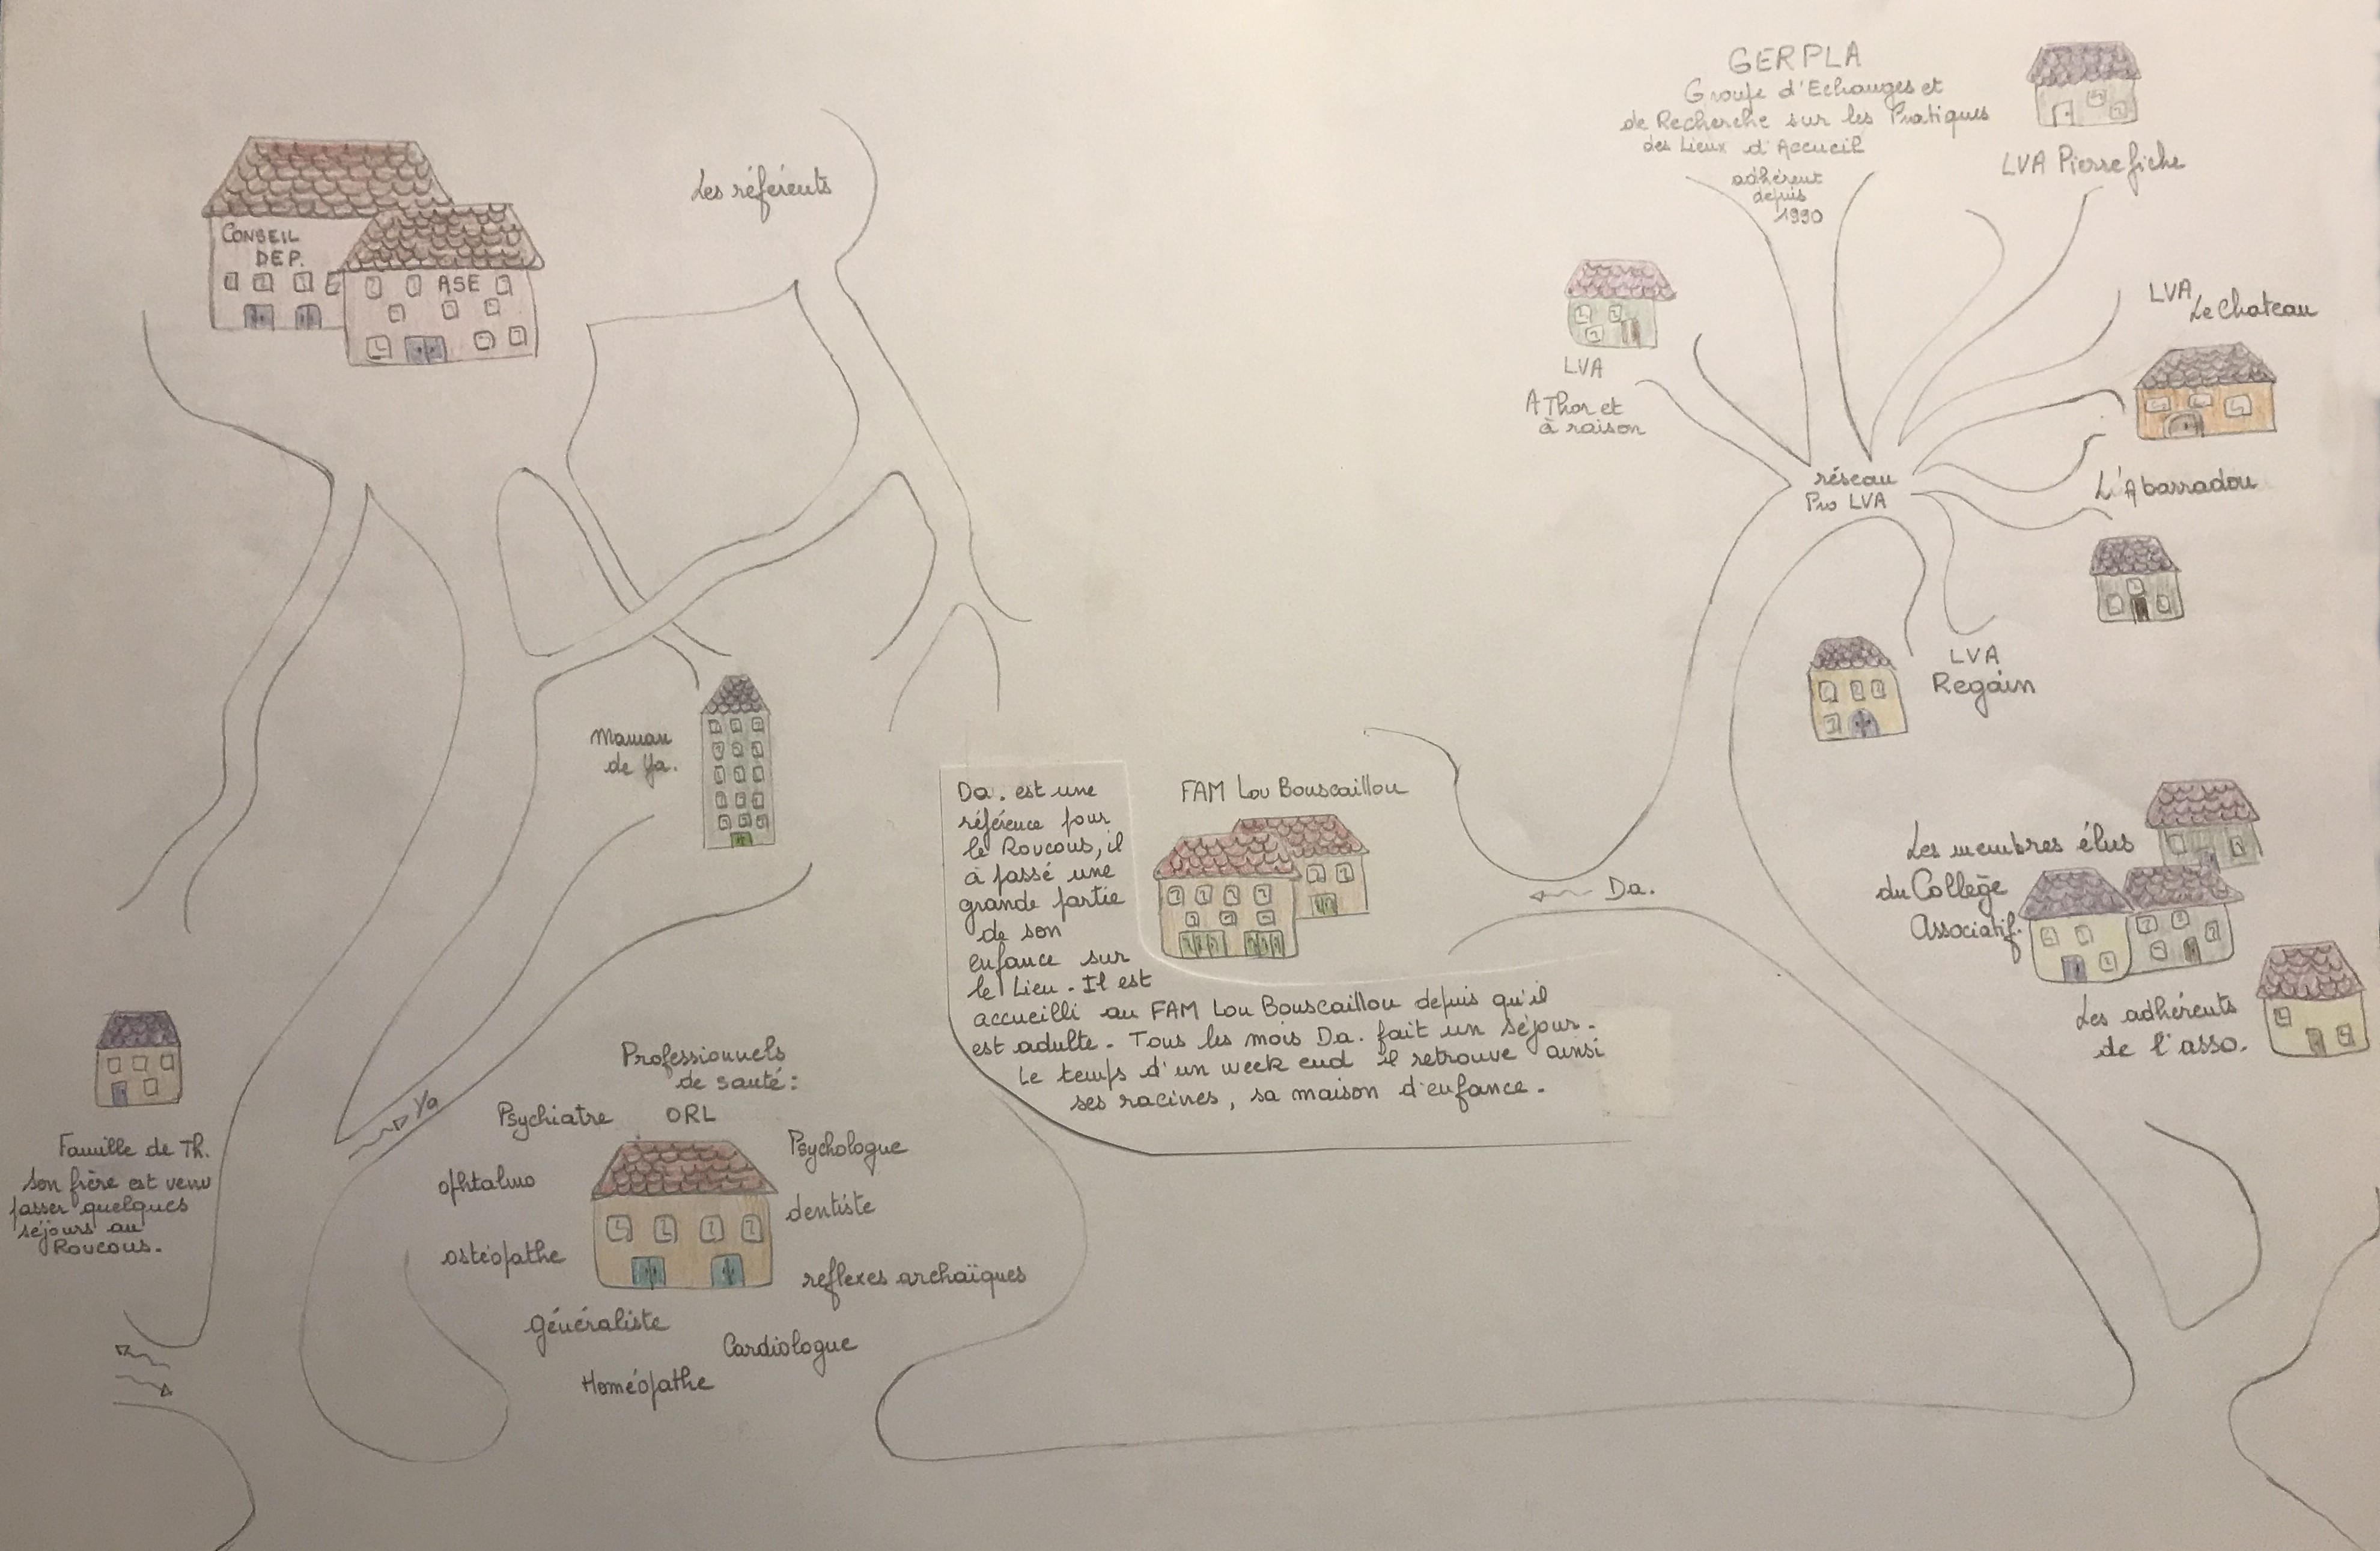 CONSEIL
DEP.
ASE
Les référents
Maman
de Ya.
Famille de Th.
Son frère est venu
passer quelques
séjours au
Roucous.
Ya
Professionnels
de santé :
Psychiatre
ORL
Psychologue
ophtalmo
dentiste
ostéopathe
reflexes archaïques
Généraliste
Cardiologue
Homéopathe
Da. est une
référence pour
le Roucous, il
à passé une
grande partie
de son
enfance sur
le Lieu. Il est
accueilli au FAM Lou Bouscaillou depuis qu'il
est adulte. Tous les mois Da. fait un séjour.
Le temps d'un week end il retrouve ainsi
ses racines, sa maison d'enfance.
FAM Lou Bouscaillou
Da.
GERPLA
Groupe d'Echanges et
de Recherche sur les Pratiques
des Lieux d'Accueil
adhérent
depuis
1990
LVA Pierrefiche
LVA
A Thor et
à raison
LVA
Le Chateau
réseau
Pro LVA
L'Abarradou
LVA
Regain
Les membres élus
du Collège
Associatif.
Les adhérents
de l'asso.